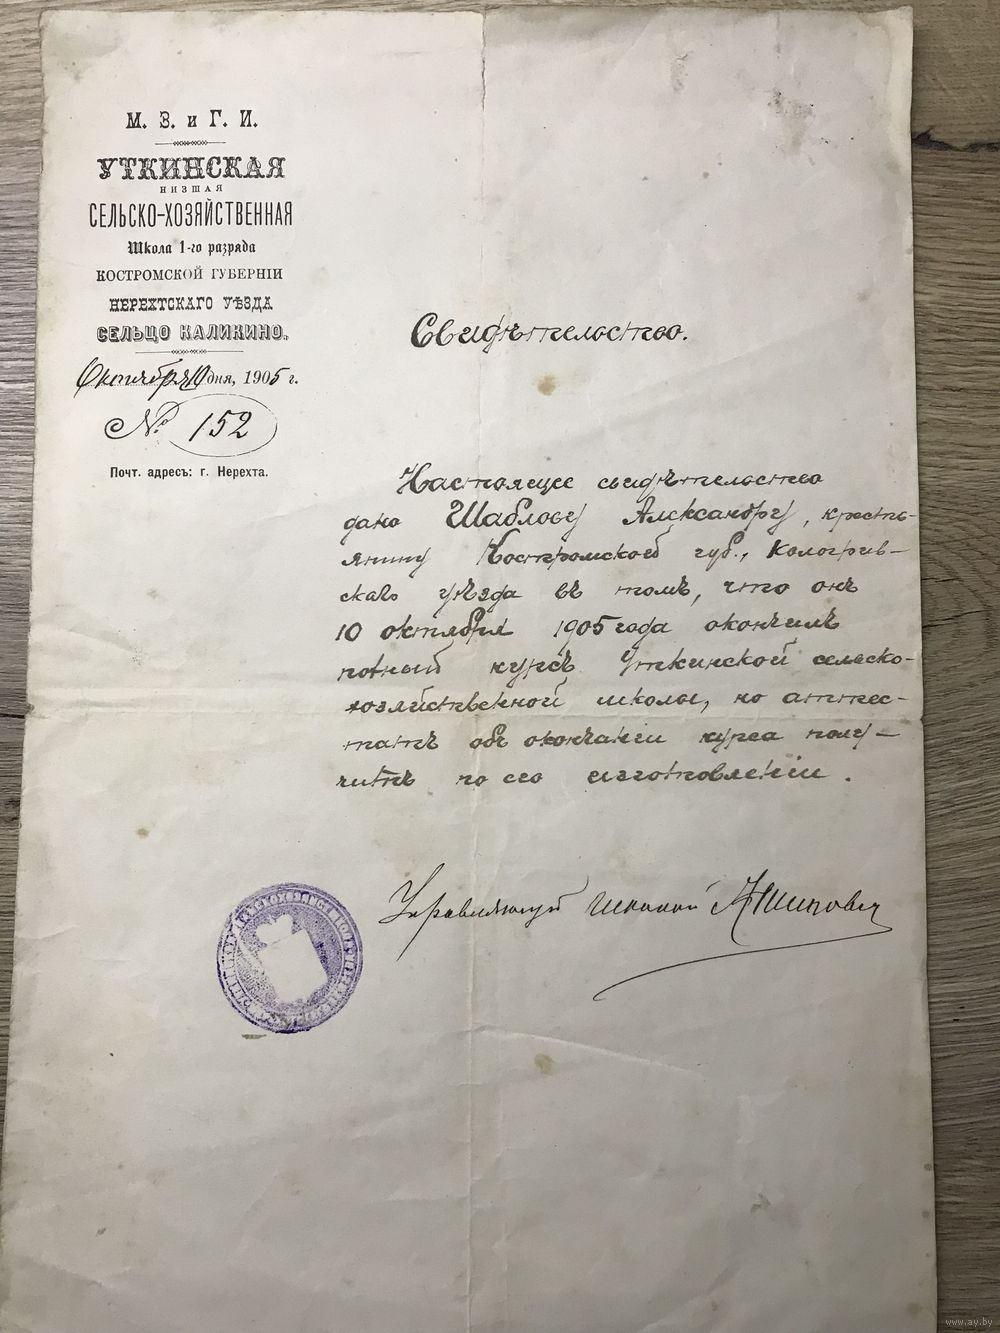 М. З. и Г. И.
УТКИНСКАЯ
НИЗШАЯ
СЕЛЬСКО-ХОЗЯЙСТВЕННАЯ
Школа 1-го разряда
КОСТРОМСКОЙ ГУБЕРНІИ
НЕРЕХТСКАГО УѢЗДА
СЕЛЬЦО КАЛИКИНО.
Октября 10 дня, 1905 г.
№ 152
Почт. адресъ: г. Нерехта.
Свидѣтельство.
Настоящее свидѣтельство
дано Шаблову Александру, кресть-
янину Костромской губ., Кологрив-
скаго уѣзда въ томъ, что онъ
10 октября 1905 года окончилъ
полный курсъ Уткинской сельско-
хозяйственной школы, но аттес-
татъ объ окончаніи курса полу-
читъ по его изготовленіи.
Управляющій школой
www.ay.by